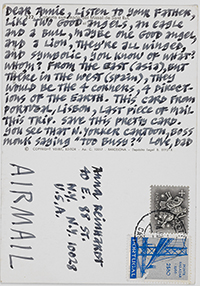 DEAR ANNIE, LISTEN TO YOUR FATHER,
LIKE TWO GOOD ANGELS, AN EAGLE
AND A BULL, MAYBE ONE GOOD ANGEL,
AND A LION, THEY'RE ALL WINGED,
AND SYMBOLIC, YOU KNOW OF WHAT?
WHOM? FROM THE EAST (ASIA), BUT
THERE IN THE WEST (SPAIN), THEY
WOULD BE THE 4 CORNERS, 4 DIRECT-
IONS OF THE EARTH. THIS CARD FROM
PORTUGAL, LISBON, LAST PRICE OF MAIL
THIS TRIP. SAVE THIS PRETTY CARD.
YOU SEE THAT N.YORKER CARTOON, BOSS
MAN SAYING "TOO BUSY?" LOVE, DAD
AIRMAIL
ANNA REINHARDT
40 E. 88 ST.
N.Y. N.Y. 10028
U.S.A.
PORTUGAL